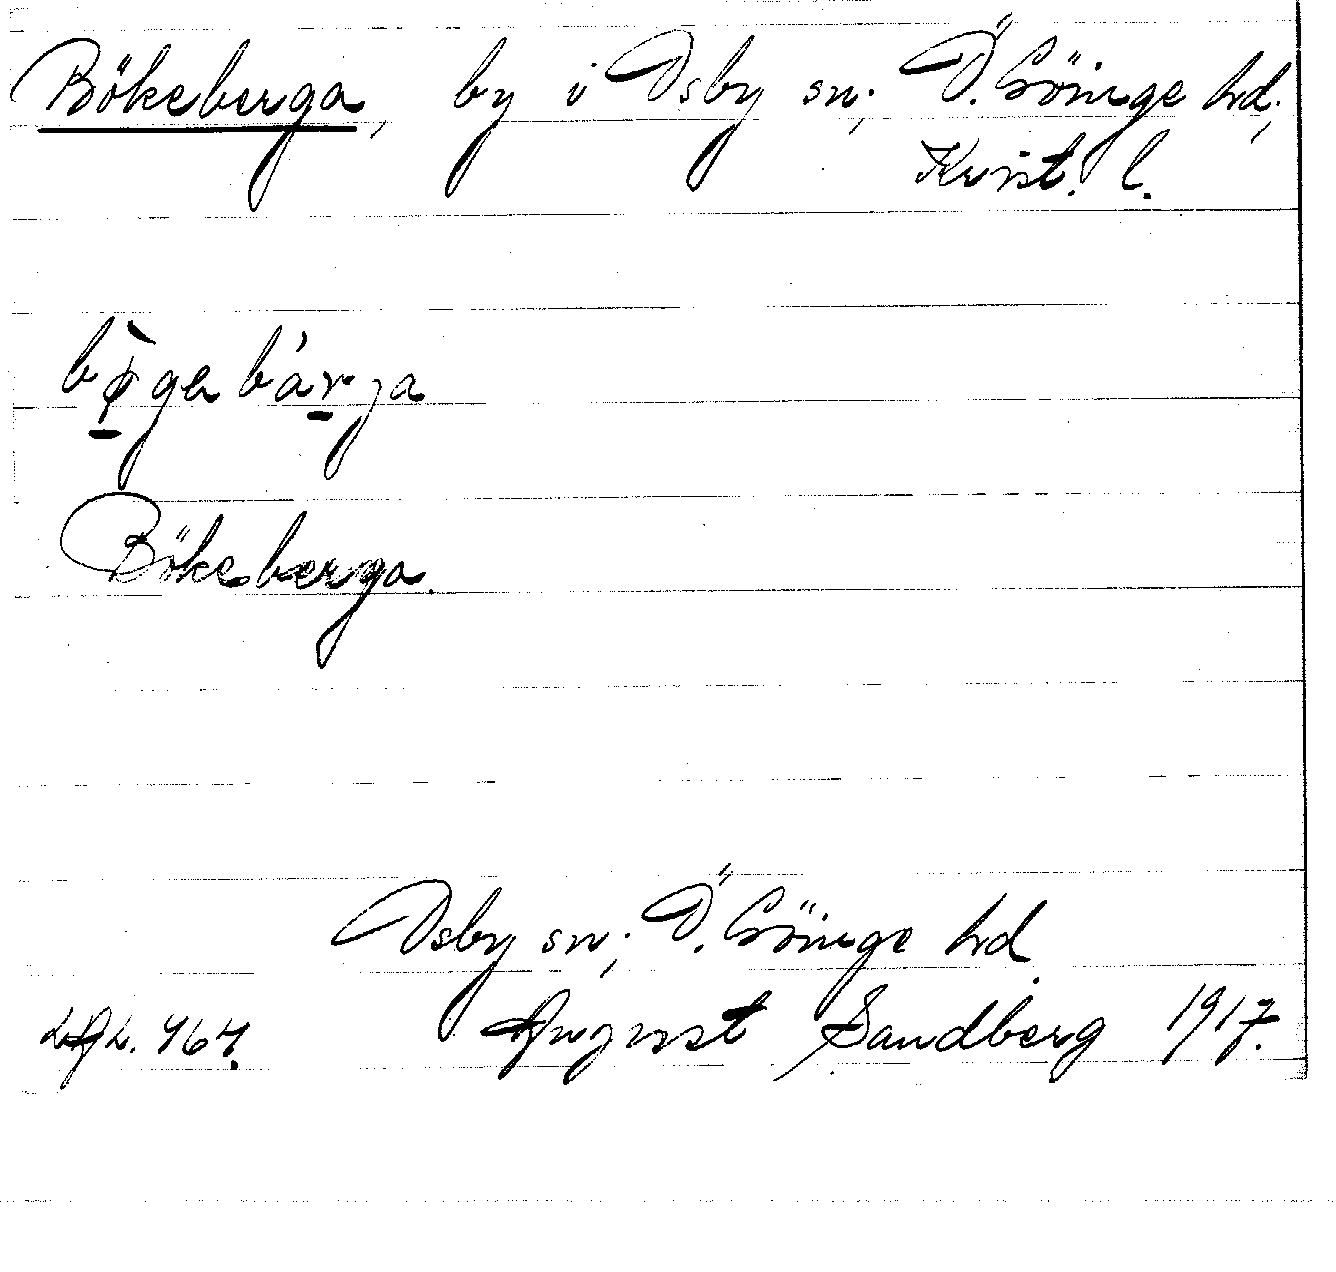 Bökeberga, by i Osby sn; Ö. Göinge hd;
Krist. l.
bø̀ga bárja
Bökeberga.
Osby sn; Ö. Göinge hd.
August Sandberg 1917.